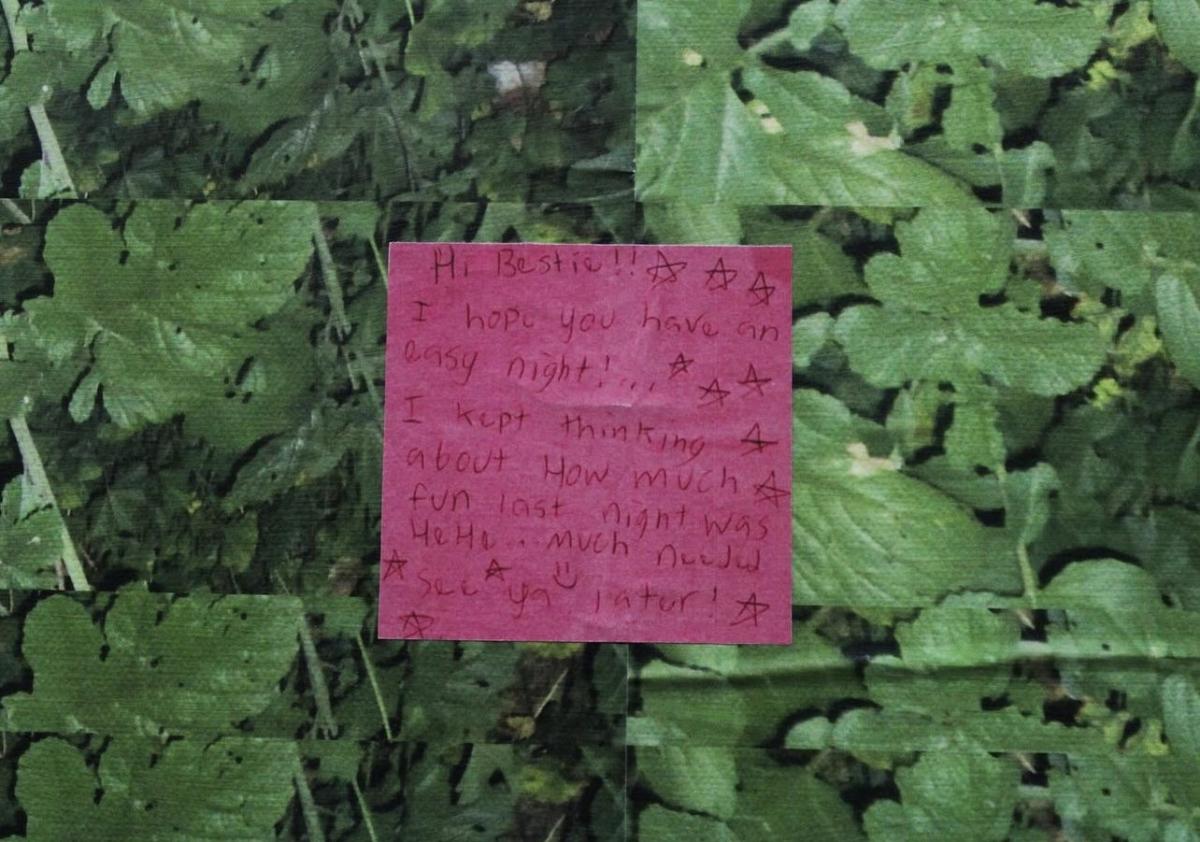 Hi Bestie!!
I hope you have an
easy night!...
I kept thinking
about How much
fun last night was
HeHe.. much needed
See ya later!